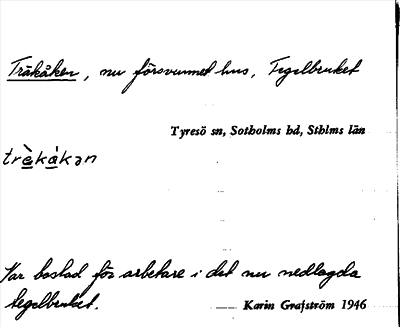 Träkåken, nu försvunnet hus, Tegelbruket
Tyresö sn, Sotholms hd, Sthlms län
trè̱kå̀kən
Var bostad för arbetare i det nu nedlagda
tegelbruket.
Karin Grafström 1946